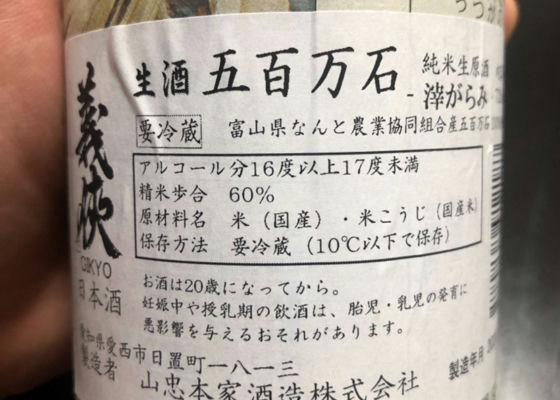 義侠
GIKYO
日本酒
生酒 五百万石
純米生原酒
滓がらみ
要冷蔵 富山県なんと農業協同組合産五百万石
アルコール分16度以上17度未満
精米歩合 60%
原材料名 米（国産）・米こうじ（国産米）
保存方法 要冷蔵（10℃以下で保存）
お酒は20歳になってから。
妊娠中や授乳期の飲酒は、胎児・乳児の発育に
悪影響を与えるおそれがあります。
愛知県愛西市日置町一八一三
製造者 山忠本家酒造株式会社
製造年月